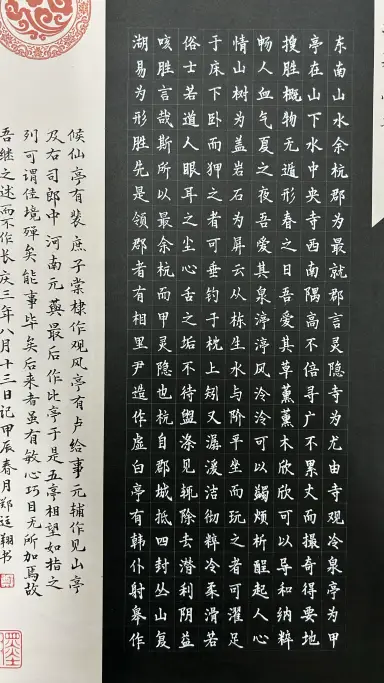 东南山水余杭郡为最就郡言灵隐寺为尤由寺观冷泉亭为甲
亭在山下水中央寺西南隅高不倍寻广不累丈而撮奇得要地
搜胜概物无遁形春之日吾爱其草薰薰木欣欣可以导和纳粹
畅人血气夏之夜吾爱其泉渟渟风泠泠可以蠲烦析酲起人心
情山树为盖岩石为屏云从栋生水与阶平坐而玩之者可濯足
于床下卧而狎之者可垂钓于枕上矧又潺湲洁彻粹冷柔滑若
俗士若道人眼耳之尘心舌之垢不待盥涤见辄除去潜利阴益
咳胜言哉斯所以最余杭而甲灵隐也杭自郡城抵四封丛山复
湖易为形胜先是领郡者有相里尹造作虚白亭有韩仆射皋作
候仙亭有裴庶子棠棣作观风亭有卢给事元辅作见山亭
及右司郎中河南元藇最后作此亭于是五亭相望如指之
列可谓佳境殚矣能事毕矣后来者虽有敏心巧目无所加焉故
吾继之述而不作长庆三年八月十三日记甲辰春月郑运翔书